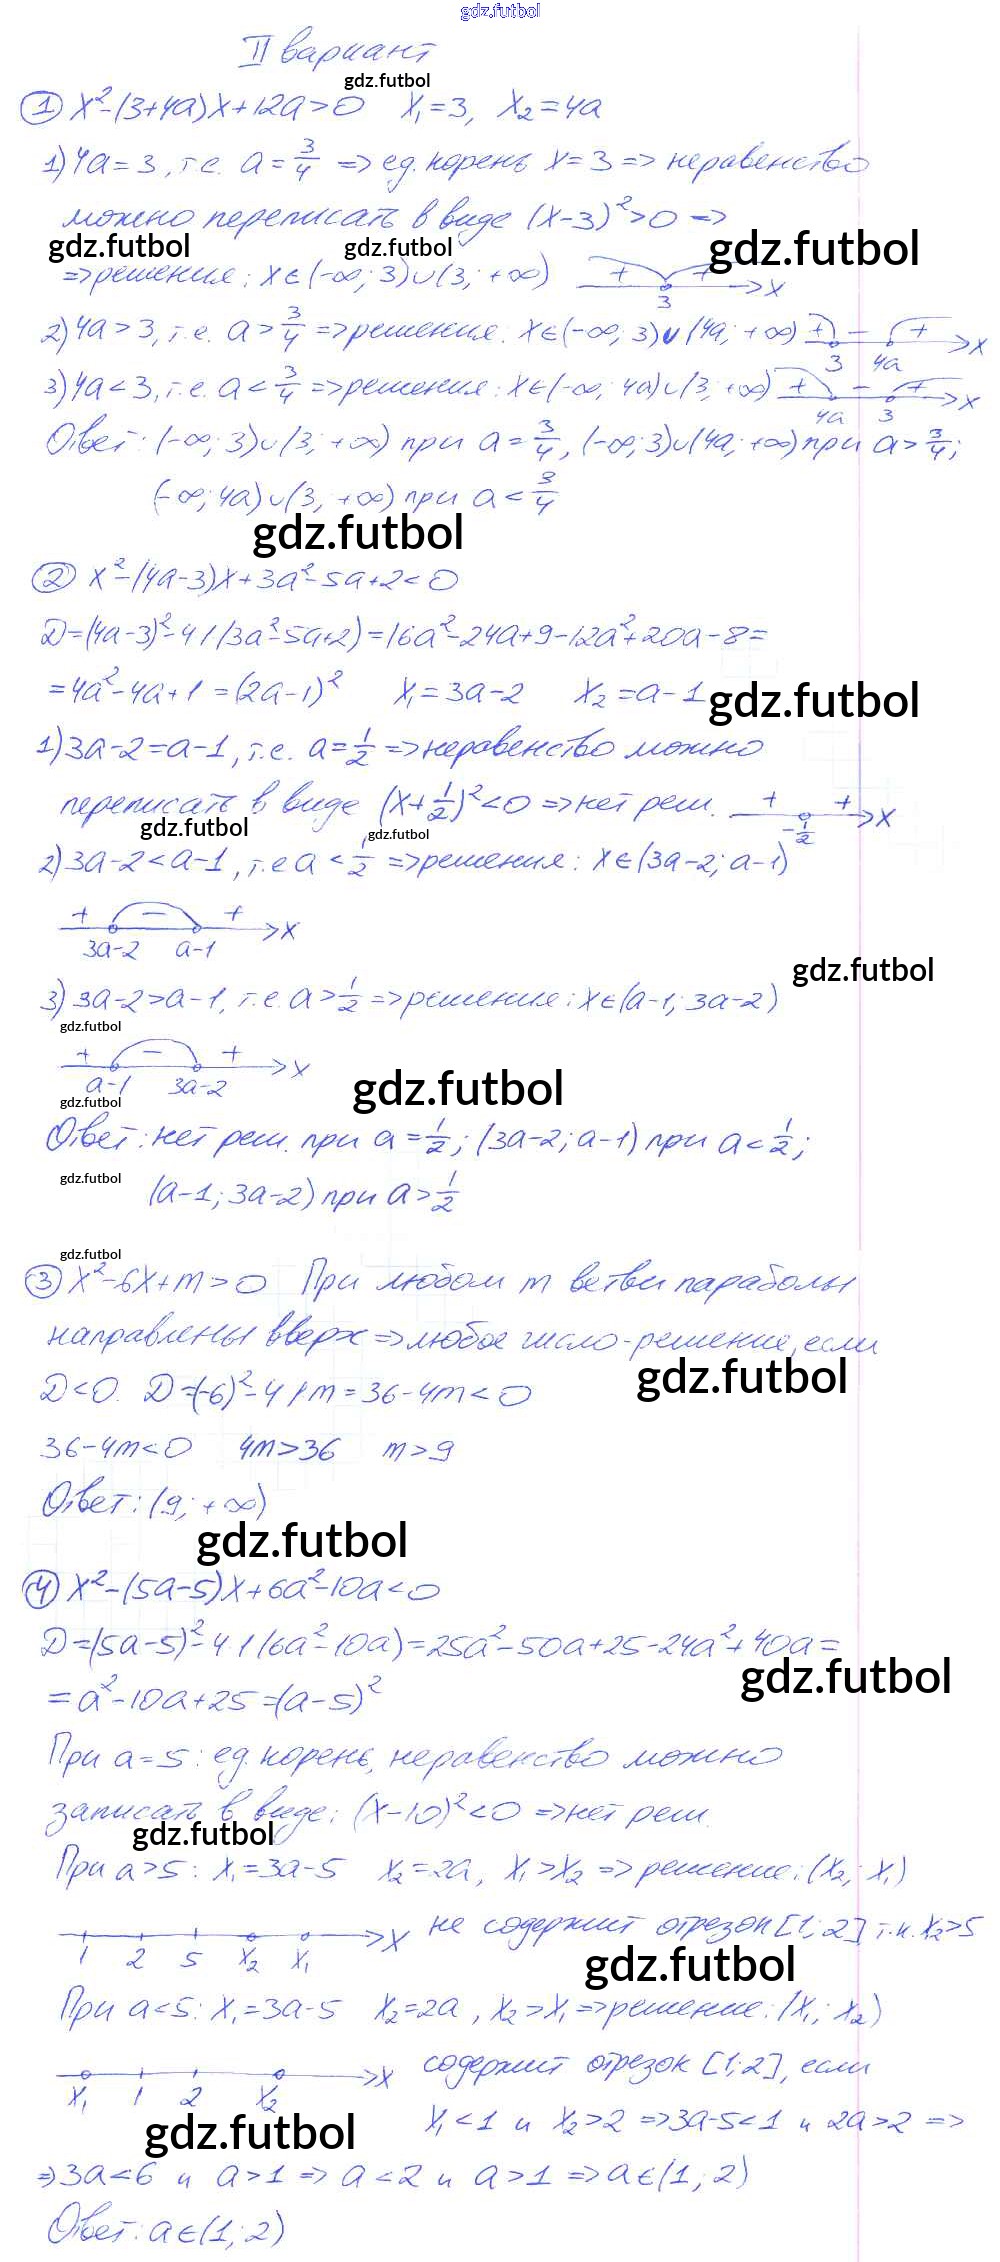 gdz.futbol
II вариант
gdz.futbol
① x²-(3+4a)x+12a>0 x₁=3, x₂=4a
1) 4a=3, т.е. a=3/4 => ед. корень x=3 => неравенство
можно переписать в виде (x-3)²>0 =>
gdz.futbol gdz.futbol gdz.futbol
=> решения: x∈(-∞; 3)∪(3; +∞) + + 3 x
2) 4a>3, т.е. a>3/4 => решения: x∈(-∞; 3)∪(4a; +∞) + - + 3 4a x
3) 4a<3, т.е. a<3/4 => решения: x∈(-∞; 4a)∪(3; +∞) + - + 4a 3 x
Ответ: (-∞; 3)∪(3; +∞) при a=3/4, (-∞; 3)∪(4a; +∞) при a>3/4;
(-∞; 4a)∪(3; +∞) при a<3/4
gdz.futbol
② x²-(4a-3)x+3a²-5a+2<0
D=(4a-3)²-4·1·(3a²-5a+2)=16a²-24a+9-12a²+20a-8=
=4a²-4a+1=(2a-1)² x₁=3a-2 x₂=a-1
gdz.futbol
1) 3a-2=a-1, т.е. a=1/2 => неравенство можно
переписать в виде (x+1/2)²<0 => нет реш. + + -1/2 x
gdz.futbol gdz.futbol
2) 3a-2<a-1, т.е a<1/2 => решения: x∈(3a-2; a-1)
+ - + x
3a-2 a-1
gdz.futbol
3) 3a-2>a-1, т.е. a>1/2 => решения: x∈(a-1; 3a-2)
gdz.futbol
+ - + x
a-1 3a-2
gdz.futbol
gdz.futbol
Ответ: нет реш. при a=1/2; (3a-2; a-1) при a<1/2;
gdz.futbol
(a-1; 3a-2) при a>1/2
gdz.futbol
③ x²-6x+m>0 При любом m ветви параболы
направлены вверх => любое число-решение, если
gdz.futbol
D<0. D=(-6)²-4·1·m=36-4m<0
36-4m<0 4m>36 m>9
Ответ: (9; +∞)
gdz.futbol
④ x²-(5a-5)x+6a²-10a<0
D=(5a-5)²-4·1·(6a²-10a)=25a²-50a+25-24a²+40a=
gdz.futbol
=a²-10a+25=(a-5)²
При a=5: ед. корень, неравенство можно
записать в виде: (x-10)²<0 => нет реш.
gdz.futbol
При a>5: x₁=3a-5 x₂=2a, x₁>x₂ => решение: (x₂; x₁)
1 2 5 x₂ x₁ x не содержит отрезок [1; 2] т.к. x₂>5
gdz.futbol
При a<5: x₁=3a-5 x₂=2a, x₂>x₁ => решение: (x₁; x₂)
x₁ 1 2 x₂ x содержит отрезок [1; 2], если
gdz.futbol
x₁<1 и x₂>2 => 3a-5<1 и 2a>2 =>
=> 3a<6 и a>1 => a<2 и a>1 => a∈(1; 2)
Ответ: a∈(1; 2)